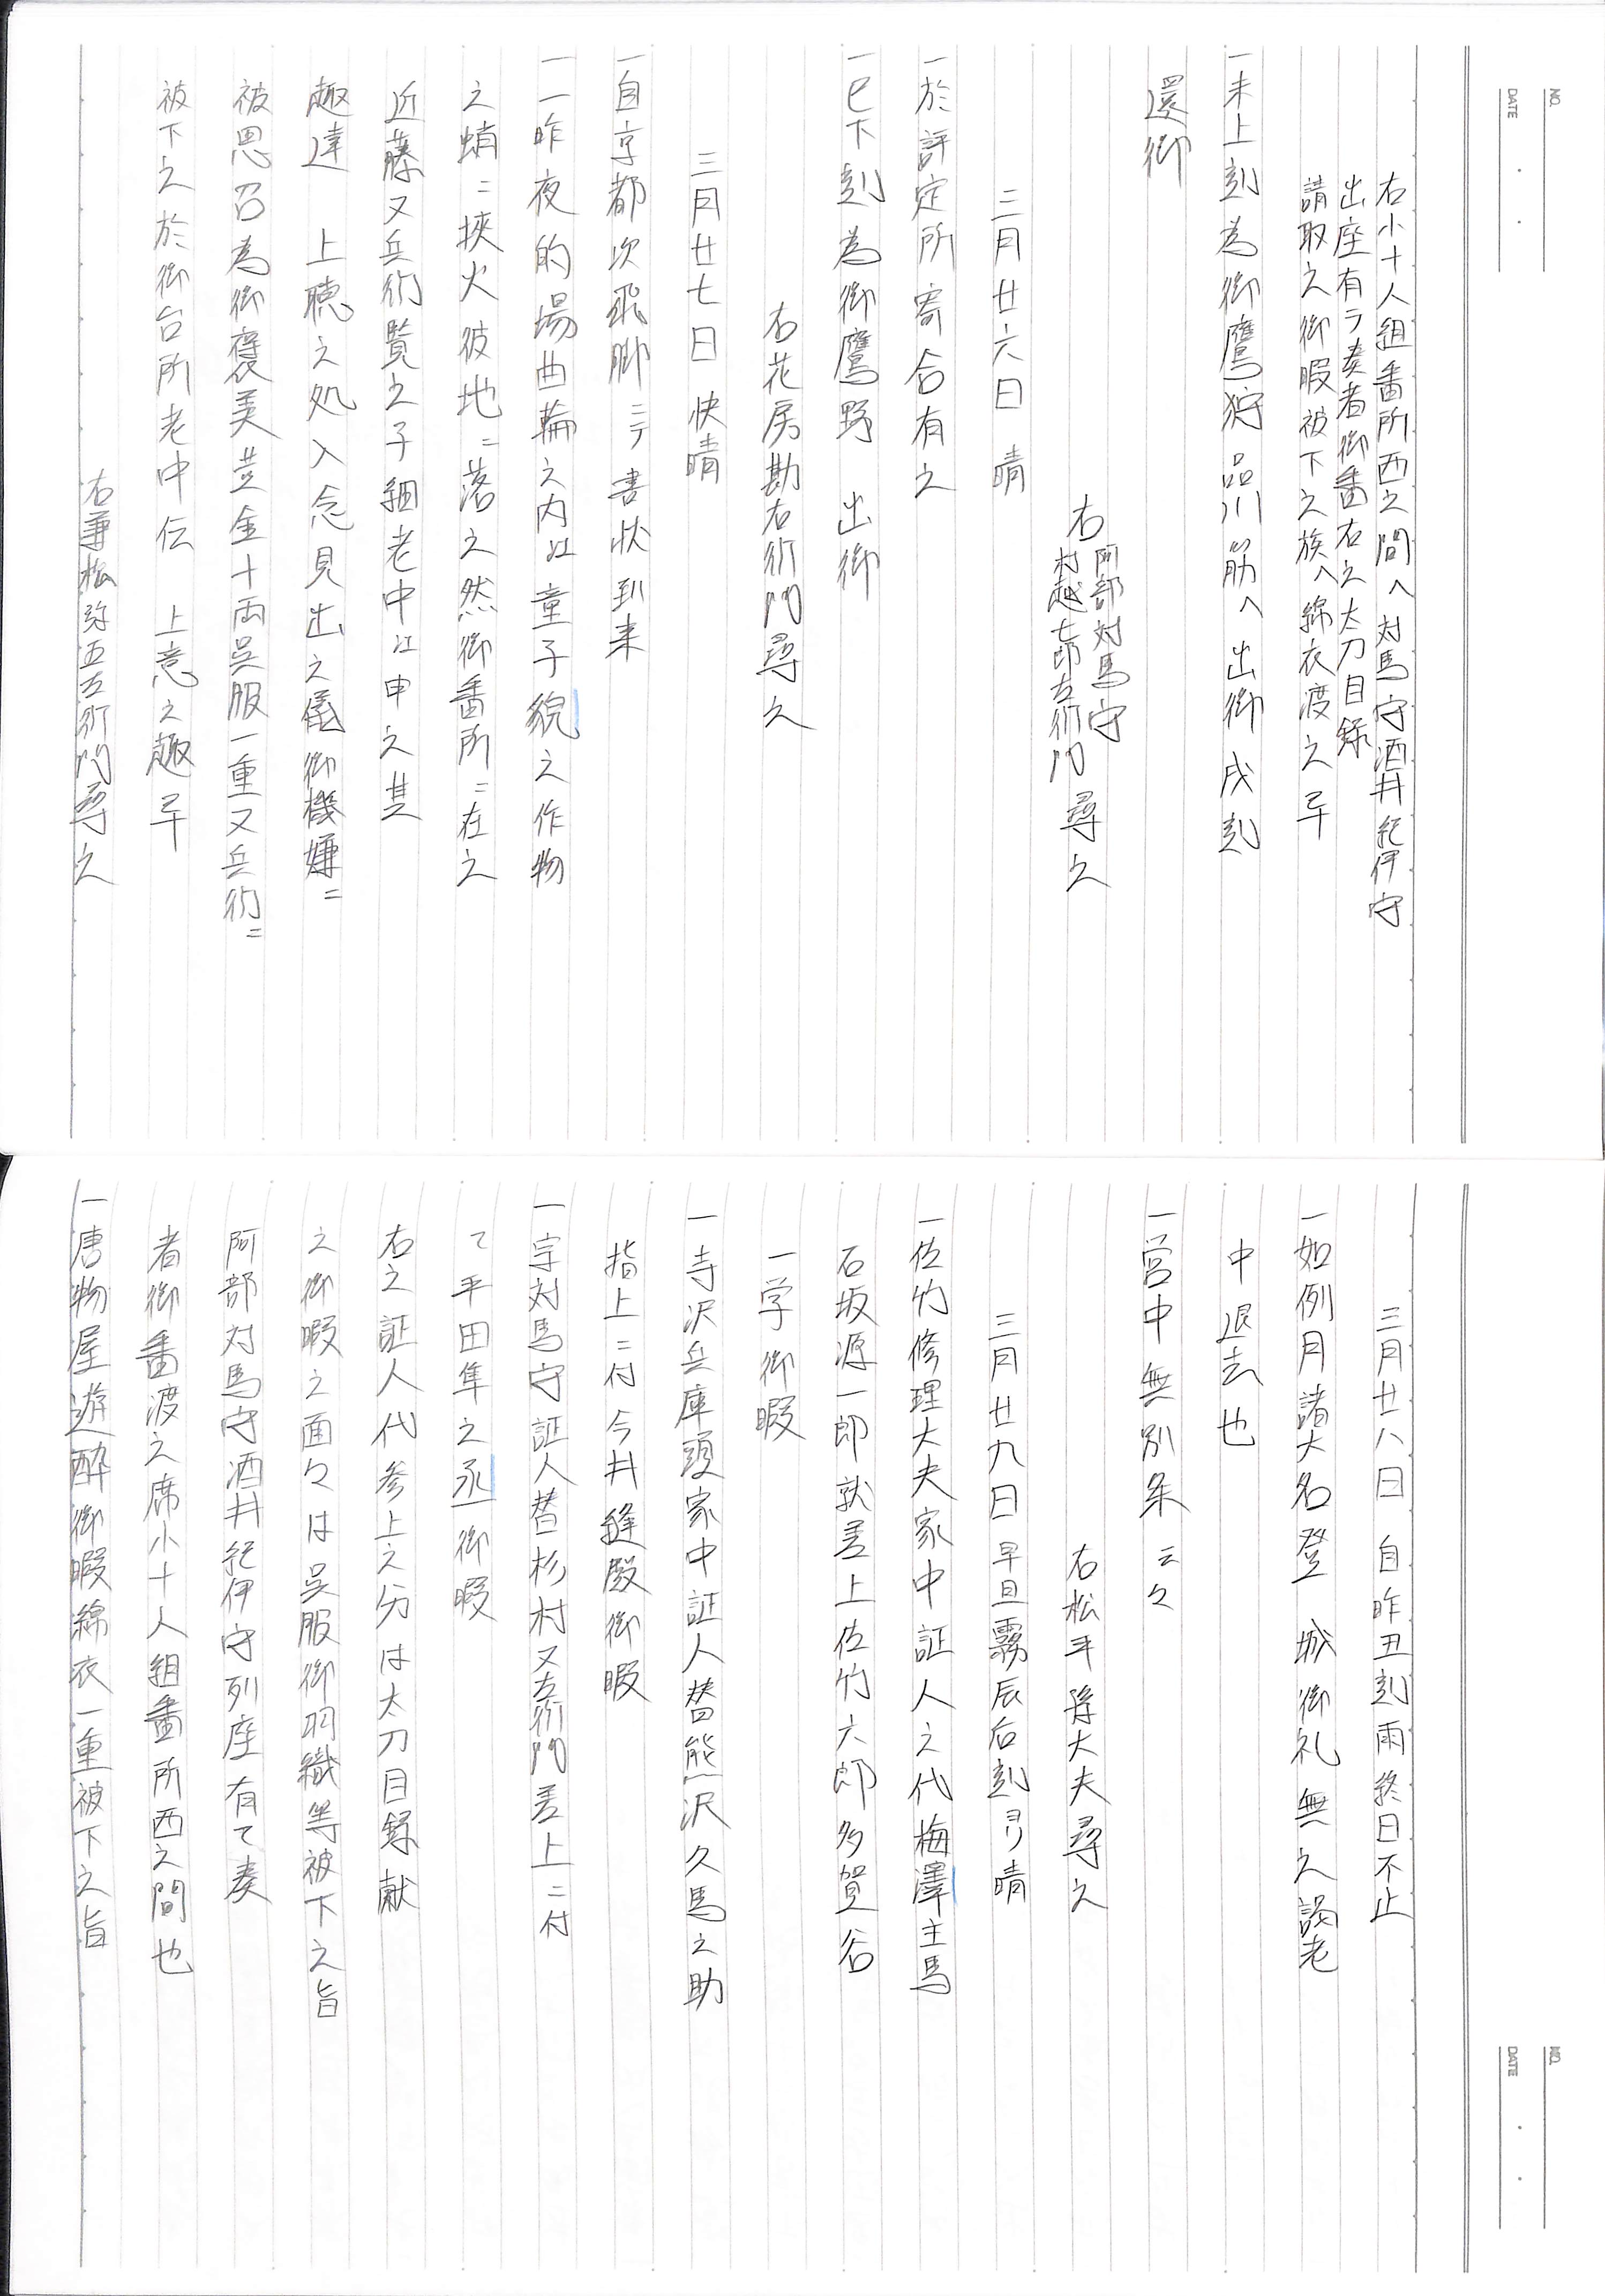 NO.
DATE
右小十人組番所西之間へ対馬守酒井紀伊守
出座有テ奏者御番右之太刀目録
請取之御暇被下之族へ綿衣渡之畢
一未上刻為御鷹狩品川筋へ 出御戌刻
還御
右阿部対馬守
村越七郎左衛門 尋之
三月廿六日 晴
一於評定所寄合有之
一巳下刻為御鷹野 出御
右花房勘右衛門尋之
三月廿七日 快晴
一自京都次飛脚ニテ書状到来
一一昨夜的場曲輪之内江童子貌之作物
之蛸ニ挟火彼地ニ落之然御番所ニ在之
近藤又兵衛覧之子細老中江申之其
趣達 上聴之処入念見出之儀御機嫌ニ
被思召為御褒美並金十両呉服一重又兵衛ニ
被下之於御台所老中伝 上意之趣畢
右兼松弥五左衛門尋之
NO.
DATE
三月廿八日 自昨丑刻雨終日不止
一如例月諸大名登 城御礼無之謁老
中退去也
一営中無別条云々
右松平隼大夫尋之
三月廿九日 早旦霧辰后刻ヨリ晴
一佐竹修理大夫家中証人之代梅澤主馬
石坂源一郎就差上佐竹六郎多賀谷
一学御暇
一寺沢兵庫頭家中証人替熊沢久馬之助
指上ニ付今井縫殿御暇
一宗対馬守証人替杉村又左衛門差上ニ付
て平田隼之丞御暇
右之証人代参上之分は太刀目録献
之御暇之面々は呉服御羽織等被下之旨
阿部対馬守酒井紀伊守列座有て奏
者御番渡之席小十人組番所西之間也
一唐物屋遊酔御暇綿衣一重被下之旨